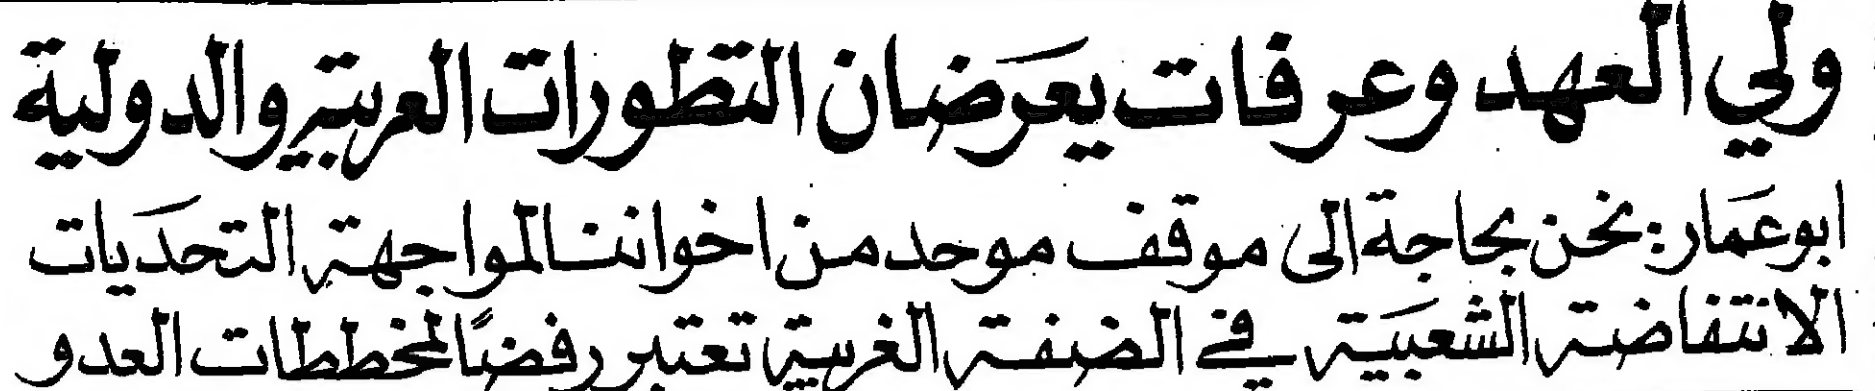 ولي العهد وعرفات يعرضان التطورات العربية والدولية
ابو عمار: نحن بحاجة الى موقف موحد من اخواننا لمواجهة التحديات
الانتفاضة الشعبية في الضفة الغربية تعتبر رفضًا لمخططات العدو